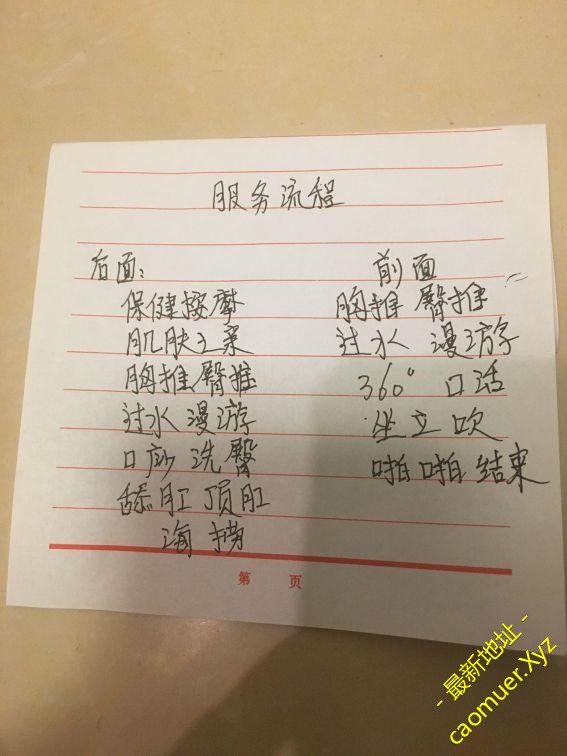 服务流程
后面：
保健按摩
肌肤之亲
胸推臀推
过水漫游
口沙洗臀
舔肛顶肛
海捞
前面
胸推 臀推
过水 漫游
360° 口活
坐立吹
啪啪结束
第 页
- 最新地址 -
caomuer.Xyz